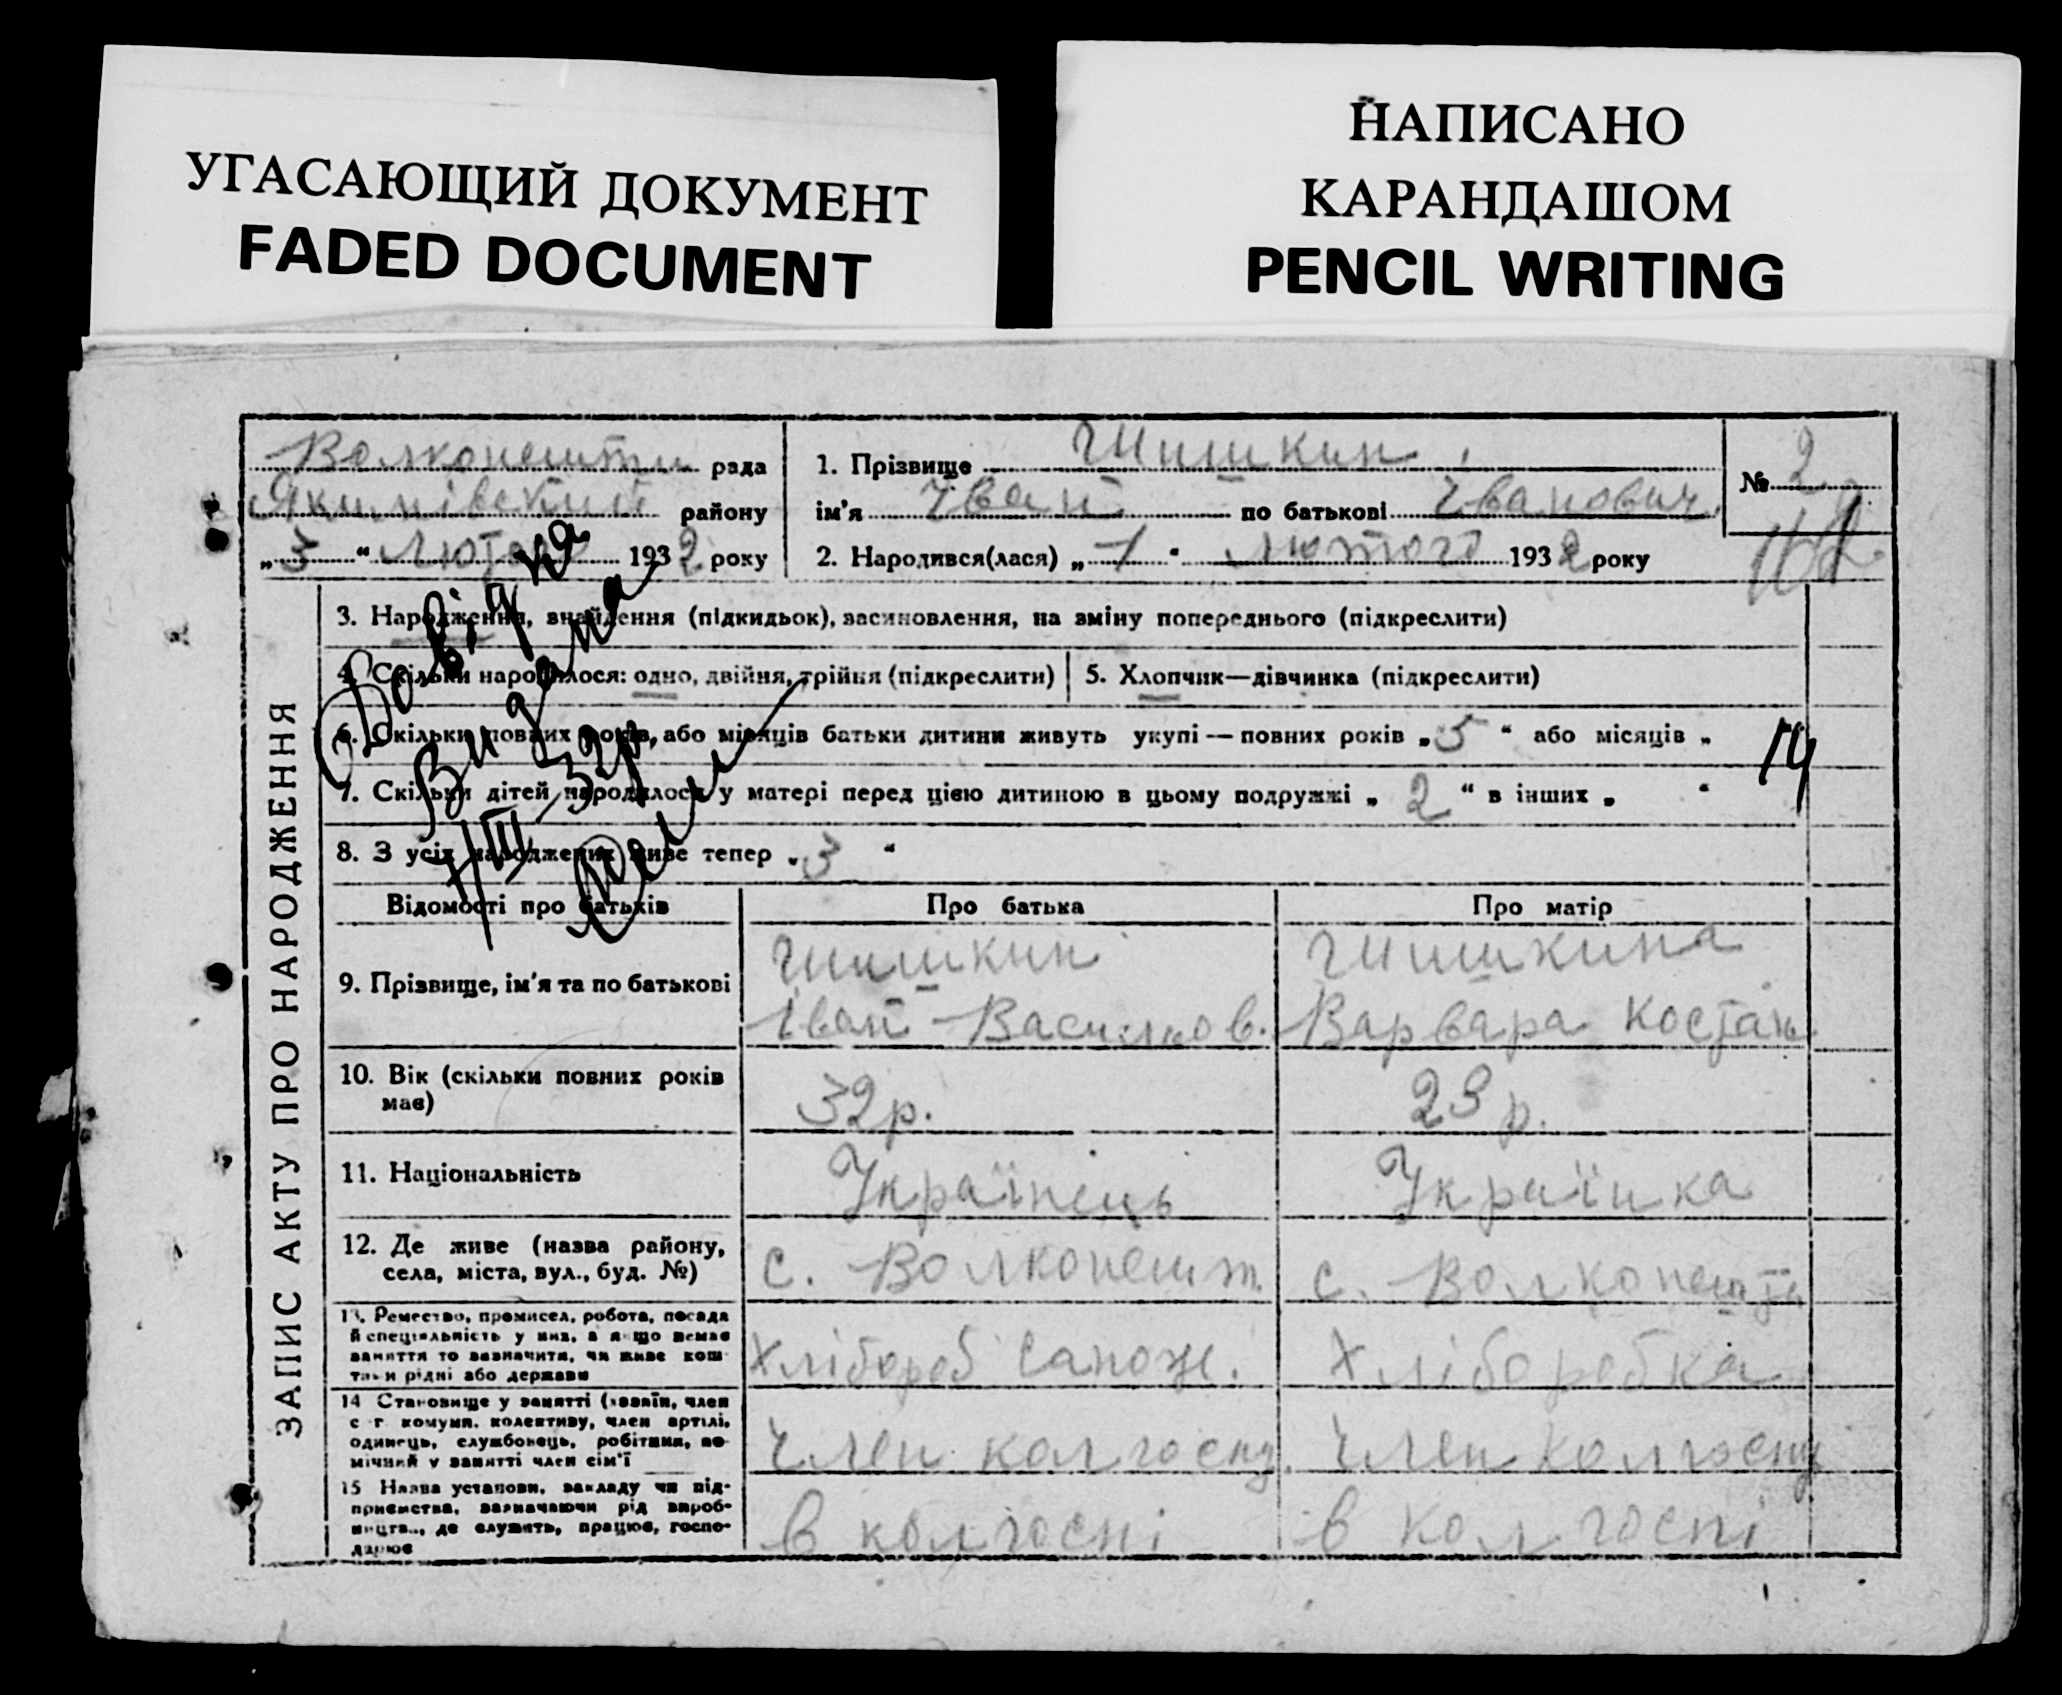 УГАСАЮЩИЙ ДОКУМЕНТ
FADED DOCUMENT
НАПИСАНО
КАРАНДАШОМ
PENCIL WRITING
Волконешти рада
Якимівский району
„ 3 “ Лютого 1932 року
1. Прізвище Шишкин
ім'я Іван по батькові Іванович
2. Народився(лася) „ 1 “ лютого 1932 року
№ 2
ЗАПИС АКТУ ПРО НАРОДЖЕННЯ
3. Народження, знайдення (підкидьок), засиновлення, на зміну попереднього (підкреслити)
4. Скільки народилося: одно, двійня, трійня (підкреслити)
5. Хлопчик—дівчинка (підкреслити)
6. Скільки повних років, або місяців батьки дитини живуть укупі — повних років „ 5 “ або місяців „
14
7. Скільки дітей народилося у матері перед цією дитиною в цьому подружжі „ 2 “ в інших „ “
8. З усіх народжених живе тепер „ 3 “
Довідка
Видана
7/III 32р.
Відомості про батьків
Про батька
Про матір
9. Прізвище, ім'я та по батькові
Шишкин
Іван Васильов.
Шишкина
Варвара Костан
10. Вік (скільки повних років
має)
32р.
23 р.
11. Національність
Українець
Українка
12. Де живе (назва району,
села, міста, вул., буд. №)
с. Волконешт.
с. Волконешти
13. Ремество, промисел, робота, посада
й спеціяльність у них, а якщо немає
заняття то зазначити, чи живе кош-
тами рідні або держави
Хлібороб Сапож.
Хліборобка
14 Становище у занятті (хазяїн, член
с-г. комуни, колективу, член артілі,
одинець, службовець, робітник, по-
мічний у занятті член сім'ї
Член колгоспу.
Член колгоспу
15 Назва установи, закладу чи під-
приємства, зазначаючи рід вироб-
ництва, де служить, працює, госпо-
дарює
в колгоспі
в колгоспі